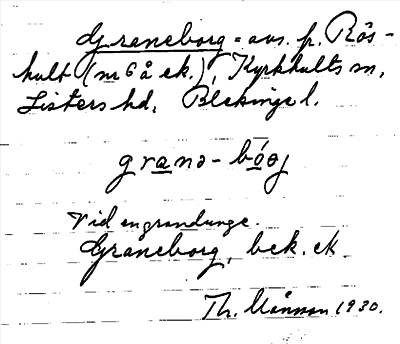 Graneborg = avs. p. Rös-
hult (nr 6 å ek.), Kyrkhults sn,
Listers hd, Blekinge l.
granə-bóəj
Vid en grandunge.
Graneborg, bek. ek.
Th. Månsson 1930.